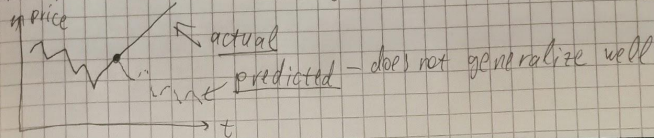 price
actual
predicted - does not generalize well
t